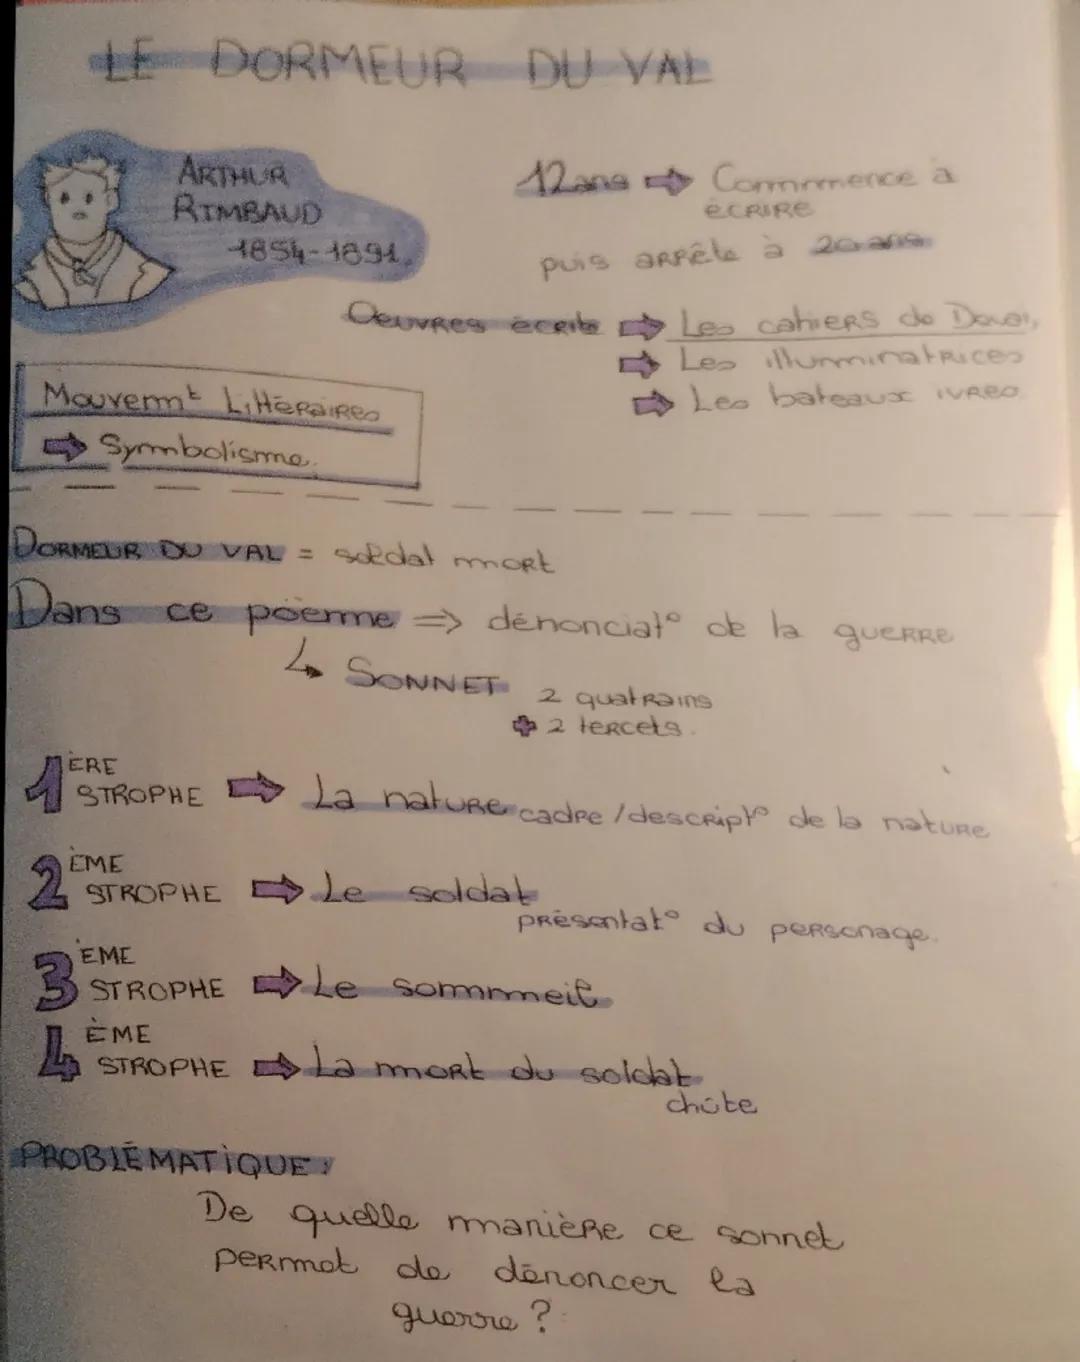 LE DORMEUR DU VAL
ARTHUR
RIMBAUD
1854-1891.
12ans ⇨ Commmence à
ÉCRIRE
puis arrête à 20 ans
Oeuvres écrits ⇨ Les cahiers de Douai,
⇨ Les illuminatrices
⇨ Les bateaux ivres
Mouvemt Littéraires
⇨ Symbolisme.
DORMEUR DU VAL = soldat mort
Dans ce poème => dénonciat° de la guerre
↳ SONNET 2 quatrains
+ 2 tercets.
1ÈRE STROPHE ⇨ La nature cadre / descript° de la nature
2ÈME STROPHE ⇨ Le soldat
présentat° du personage.
3ÈME STROPHE ⇨ Le sommeil
4ÈME STROPHE ⇨ La mort du soldat
chûte
PROBLÉMATIQUE :
De quelle manière ce sonnet
permet de dénoncer la
guerre ?